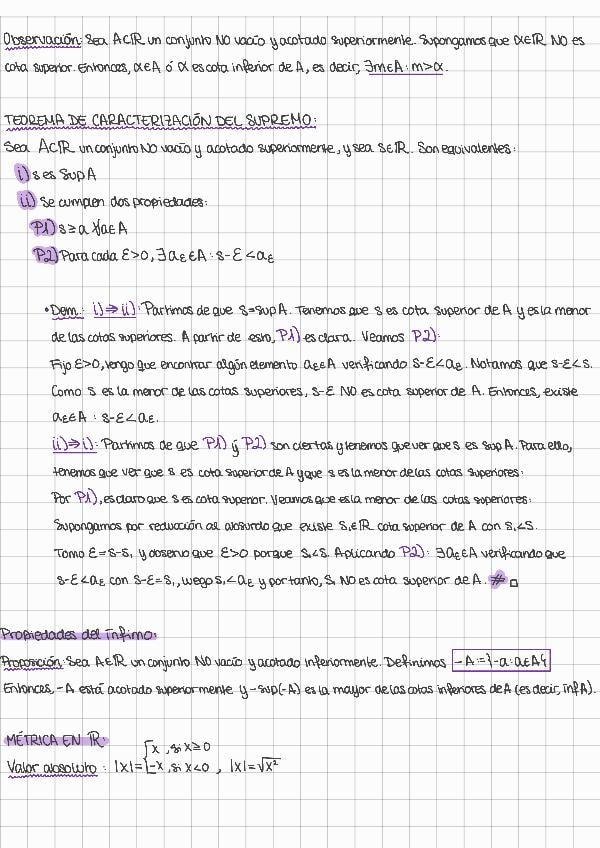 Observación: Sea A⊂ℝ un conjunto NO vacío y acotado superiormente. Supongamos que α∈ℝ NO es
cota superior. Entonces, α∈A ó α es cota inferior de A, es decir, ∃m∈A : m>α.
TEOREMA DE CARACTERIZACIÓN DEL SUPREMO:
Sea A⊂ℝ un conjunto NO vacío y acotado superiormente, y sea s∈ℝ. Son equivalentes:
i) s es Sup A
ii) Se cumplen dos propiedades:
P1) s≥a ∀a∈A
P2) Para cada ε>0, ∃aε∈A : s-ε<aε
• Dem.: i)⇒ii): Partimos de que s=sup A. Tenemos que s es cota superior de A y es la menor
de las cotas superiores. A partir de esto, P1) es clara. Veamos P2):
Fijo ε>0, tengo que encontrar algún elemento aε∈A verificando s-ε<aε. Notamos que s-ε<s.
Como s es la menor de las cotas superiores, s-ε NO es cota superior de A. Entonces, existe
aε∈A : s-ε<aε.
ii)⇒i): Partimos de que P1) y P2) son ciertas y tenemos que ver que s es sup A. Para ello,
tenemos que ver que s es cota superior de A y que s es la menor de las cotas superiores:
Por P1), es claro que s es cota superior. Veamos que es la menor de las cotas superiores:
Supongamos por reducción al absurdo que existe s₁∈ℝ cota superior de A con s₁<s.
Tomo ε=s-s₁ y observo que ε>0 porque s₁<s. Aplicando P2): ∃aε∈A verificando que
s-ε<aε con s-ε=s₁, luego s₁<aε y por tanto, s₁ NO es cota superior de A. # □
Propiedades del ínfimo:
Proposición: Sea A∈ℝ un conjunto NO vacío y acotado inferiormente. Definimos -A:={-a : a∈A}
Entonces, -A está acotado superiormente y -sup(-A) es la mayor de las cotas inferiores de A (es decir, ínf A).
MÉTRICA EN ℝ:
Valor absoluto: |x|={x, si x≥0 -x, si x<0 , |x|=√x²